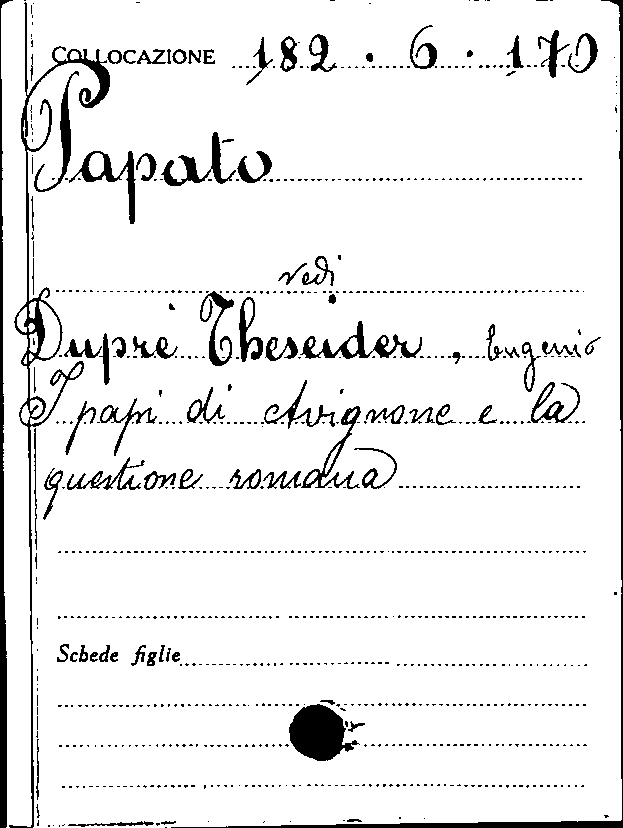 COLLOCAZIONE 182 . 6 . 170
Papato
vedi
Dupré Theseider, Eugenio
I papi di Avignone e la
questione romana
Schede figlie